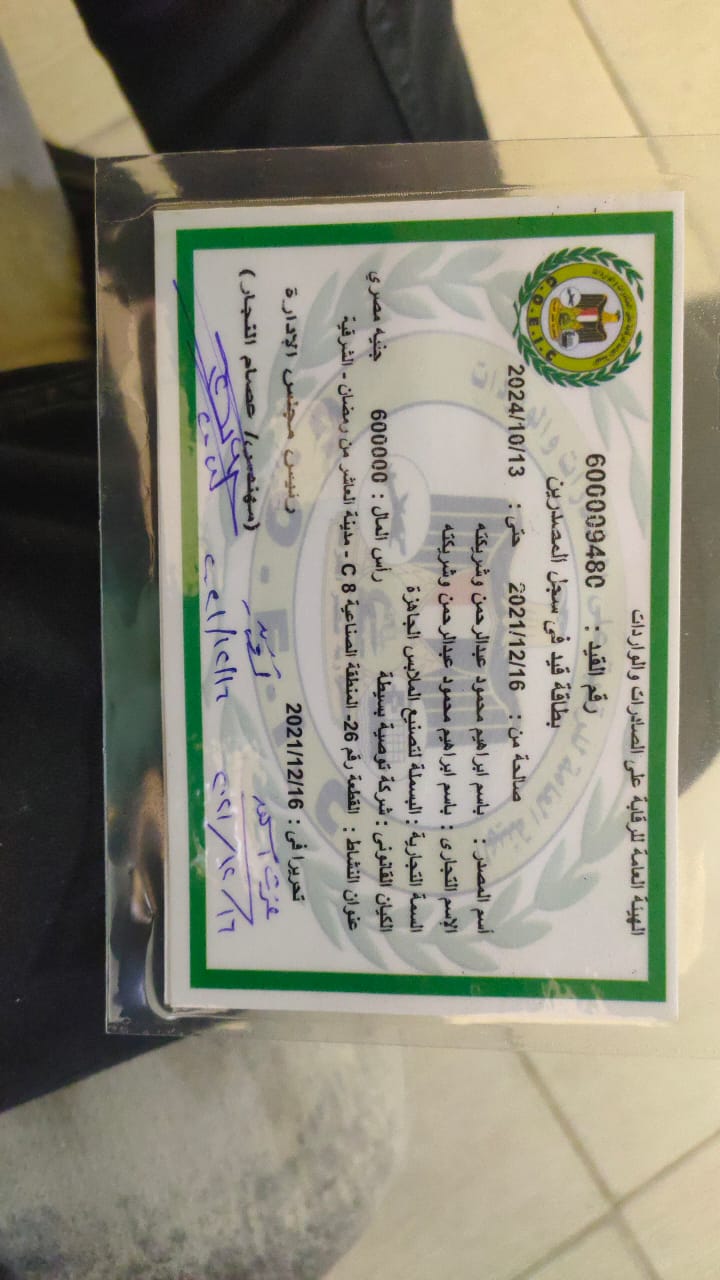 الهيئة العامة للرقابة على الصادرات والواردات
رقم القيد : 600009480
بطاقة قيد فى سجل المصدرين
صالحة من : 2021/12/16 حتى : 2024/10/13
أسم المصدر : باسم ابراهيم محمود عبدالرحمن وشريكته
الإسم التجارى : باسم ابراهيم محمود عبدالرحمن وشريكته
السمة التجارية : البسملة لتصنيع الملابس الجاهزة
الكيان القانونى : شركة توصية بسيطة رأس المال : 600000 جنيه مصري
عنوان النشاط : القطعة رقم 26- المنطقة الصناعية C 8 - مدينة العاشر من رمضان - الشرقية
تحريرا فى : 2021/12/16
رئيس مجلس الإدارة
(مهندس/ عصام النجار)
٢٠٢١/١٢/١٦
٢٠٢١/١٢/١٦
G.O.E.I.C